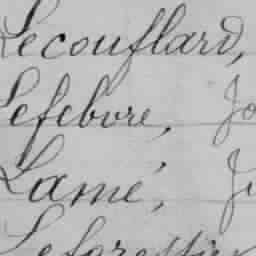 Lecouflard,
Lefebvre, Jo
Lamé, Ji
Leforestier